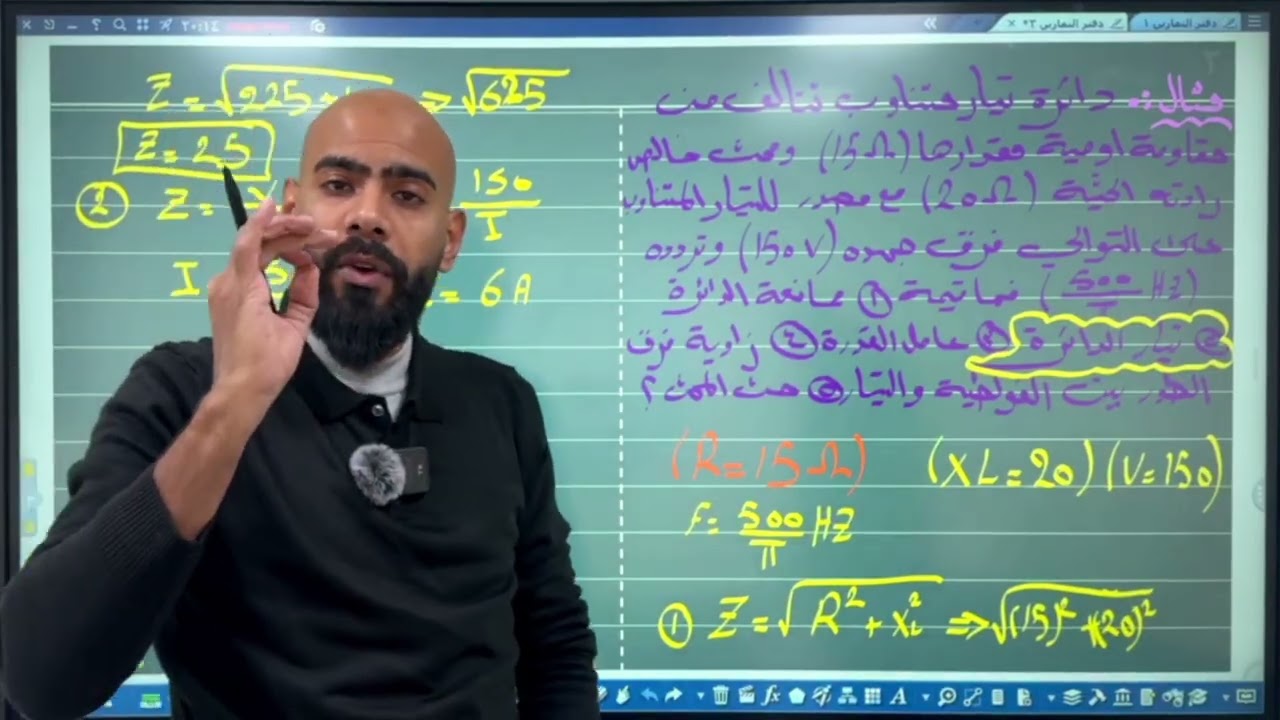 دفتر التمارين ١
دفتر التمارين ٣*
٢٠:١٤
مثال :- دائرة تيار متناوب تتألف من
مقاومة اومية مقدارها (15Ω) ومحث خالص
رادته الحثية (20Ω) مع مصدر للتيار المتناوب
على التوالي فرق جهده (150V) وتردده
(500/π HZ) فما قيمة ① ممانعة الدائرة
② تيار الدائرة ③ عامل القدرة ④ زاوية فرق
الطور بين الفولطية والتيار ⑤ حث المحث ؟
(R=15Ω) (XL=20) (V=150)
F= 500/π HZ
① Z=√R²+XL² ⇒ √(15)²+(20)²
Z=√225+ ⇒ √625
Z=25
② Z= 150/I
I = 6A